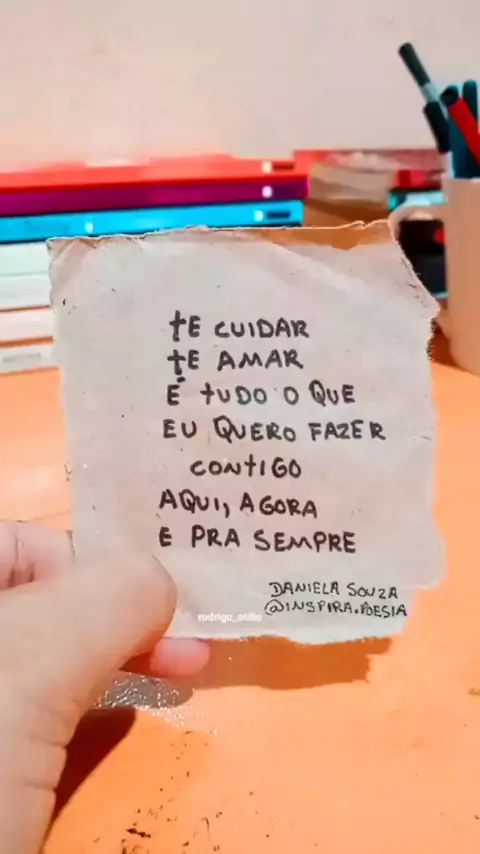 TE CUIDAR
TE AMAR
É TUDO O QUE
EU QUERO FAZER
CONTIGO
AQUI, AGORA
E PRA SEMPRE
DANIELA SOUZA
@INSPIRA.POESIA